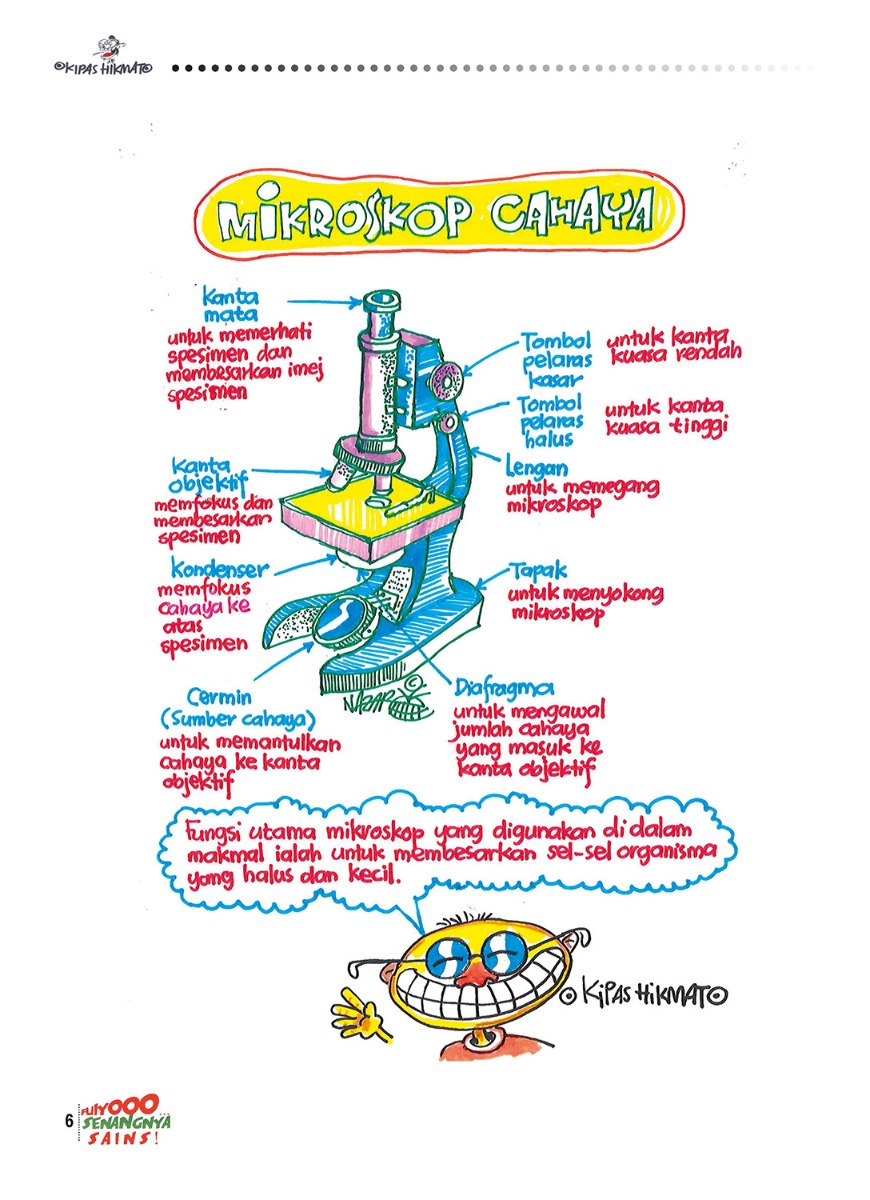 ©KIPAS HIKMATO
MIKROSKOP CAHAYA
Kanta
mata
untuk memerhati
spesimen dan
membesarkan imej
spesimen
Tombol
pelaras
kasar
untuk kanta
kuasa rendah
Tombol
pelaras
halus
untuk kanta
kuasa tinggi
Kanta
objektif
memfokus dan
membesarkan
spesimen
Lengan
untuk memegang
mikroskop
Kondenser
memfokus
cahaya ke
atas
spesimen
Tapak
untuk menyokong
mikroskop
Cermin
(Sumber cahaya)
untuk memantulkan
cahaya ke kanta
objektif
Diafragma
untuk mengawal
jumlah cahaya
yang masuk ke
kanta objektif
©
Fungsi utama mikroskop yang digunakan di dalam
makmal ialah untuk membesarkan sel-sel organisma
yang halus dan kecil.
© KIPAS HIKMATO
6
FulYOOO...
SENANGNYA
SAINS!